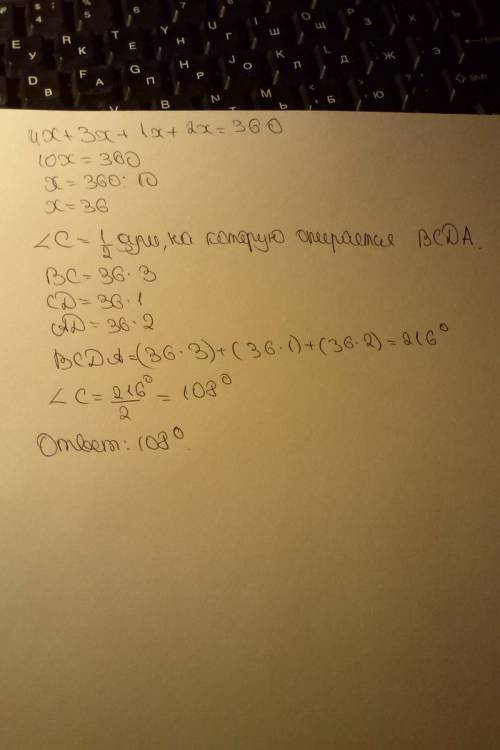 4x + 3x + 1x + 2x = 360
10x = 360
x = 360 : 10
x = 36
∠C = 1/2 дуги, на которую опирается BCDA.
BC = 36 · 3
CD = 36 · 1
AD = 36 · 2
BCDA = (36 · 3) + (36 · 1) + (36 · 2) = 216°
∠C = 216°/2 = 108°
Ответ: 108°.